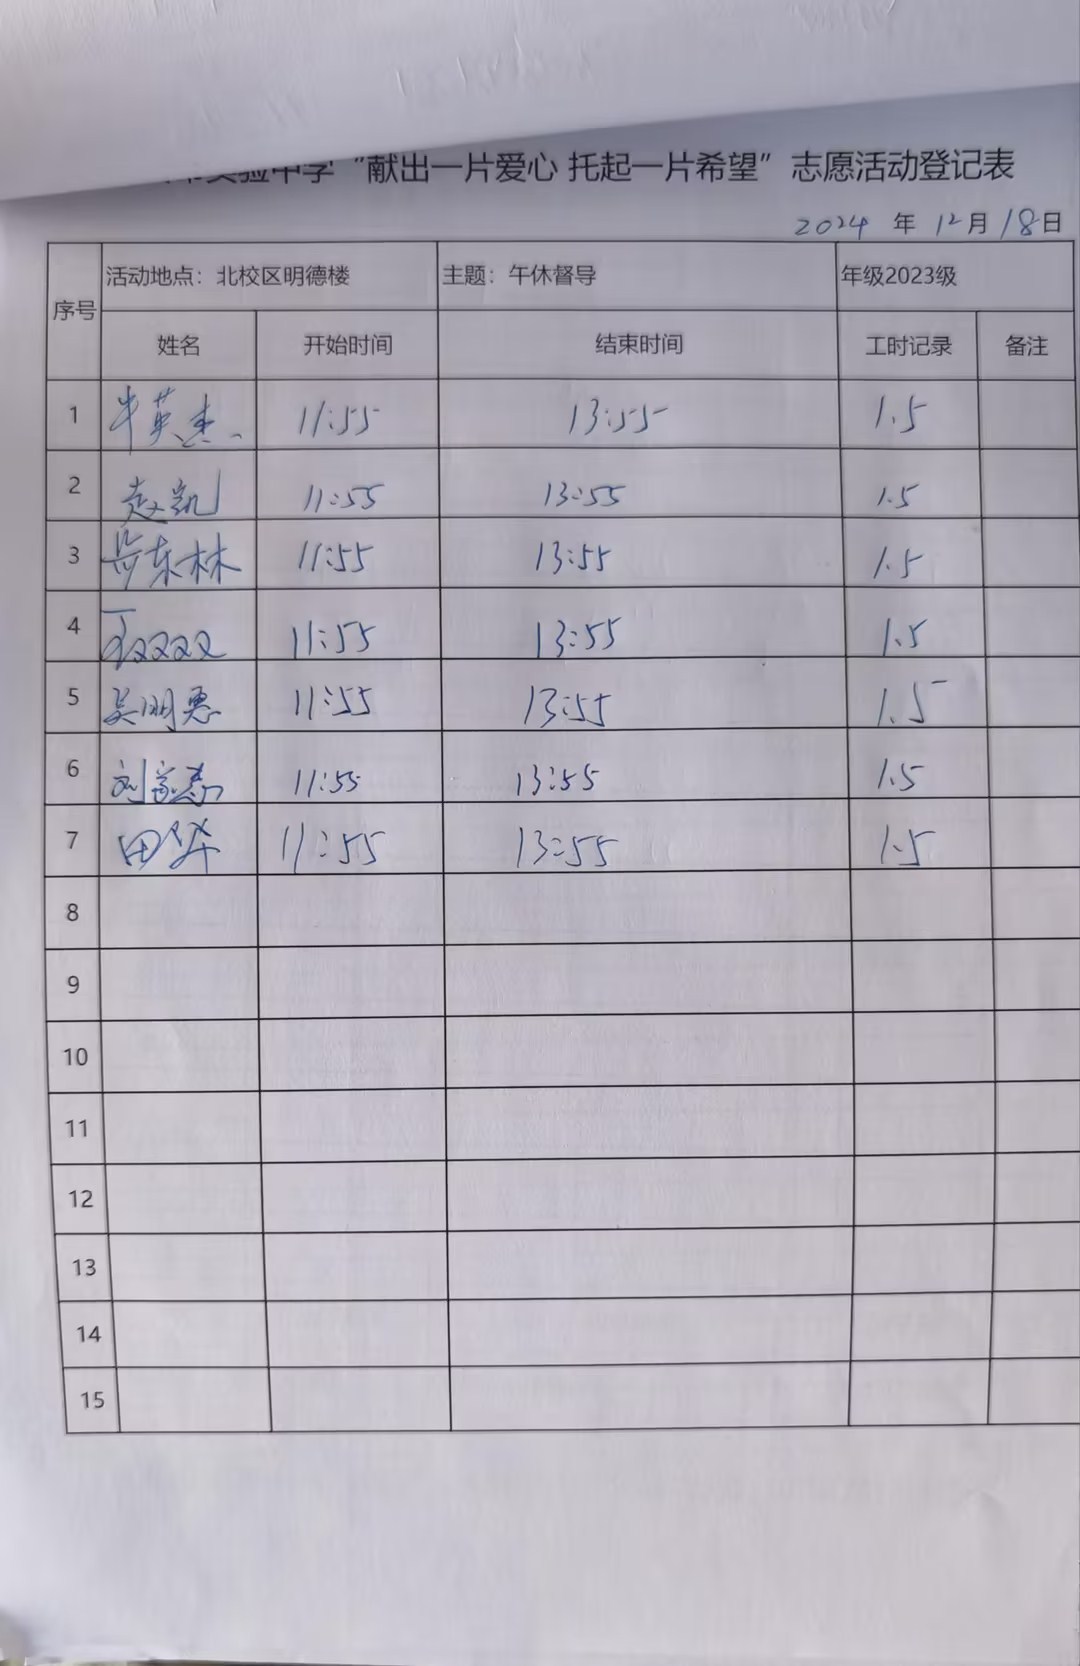 实验中学“献出一片爱心 托起一片希望”志愿活动登记表
2024 年 12月 18日
序号 活动地点：北校区明德楼 主题：午休督导 年级2023级
姓名 开始时间 结束时间 工时记录 备注
1 牛英杰 11:55 13:55 1.5
2 赵凯 11:55 13:55 1.5
3 东林 11:55 13:55 1.5
4 双双 11:55 13:55 1.5
5 吴明惠 11:55 13:55 1.5
6 刘家 11:55 13:55 1.5
7 田华 11:55 13:55 1.5
8
9
10
11
12
13
14
15